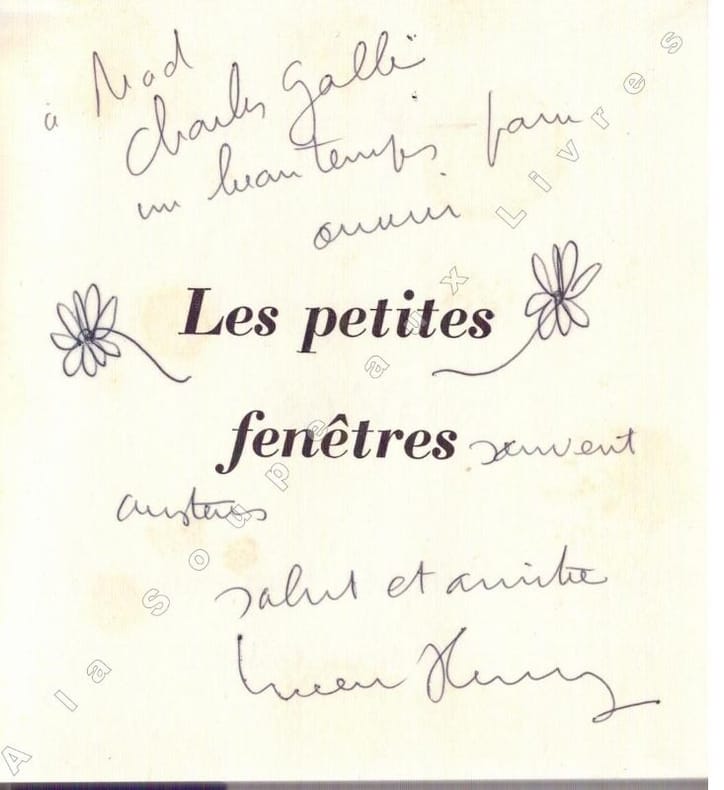 à Mad
Charles Galli
un beau temps pour
ouvrir
Les petites
fenêtres souvent
austères
salut et amitié
Lucien
A la soupe aux Livres